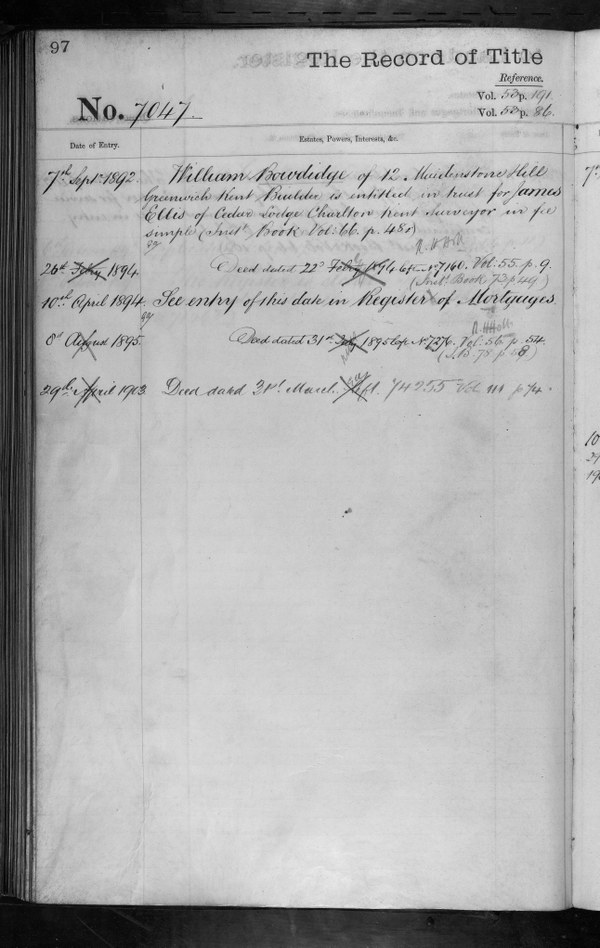 97
The Record of Title
Reference.
Vol. 53 p. 191
Vol. 53 p. 86.
No. 7047.
Date of Entry.
Estates, Powers, Interests, &c.
7th Sept. 1892. William Bowdidge of 12 Maidenstone Hill
Greenwich Kent Builder is entitled in trust for James
Ellis of Cedar Lodge Charlton Kent Surveyor in fee
simple (Inst. Book Vol: 66. p. 480)
26th Feby 1894. Deed dated 22d Feby 1894 No. 7160. Vol. 55. p. 9.
(Inst. Book 72 p 49)
10th April 1894. See entry of this date in Register of Mortgages.
8th August 1895. Deed dated 31st July 1895 No. 7276. Vol. 56 p. 54.
(I.B 78 p 58)
29th April 1903. Deed dated 31st March 74255 Vol 111 p 74.
10
29
190